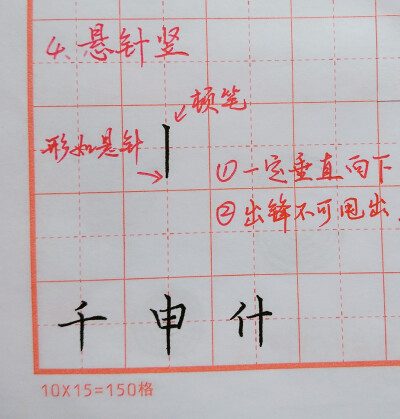 4、悬针竖
顿笔
形如悬针
①一定垂直向下
②出锋不可甩出,
千 申 什
10X15=150格